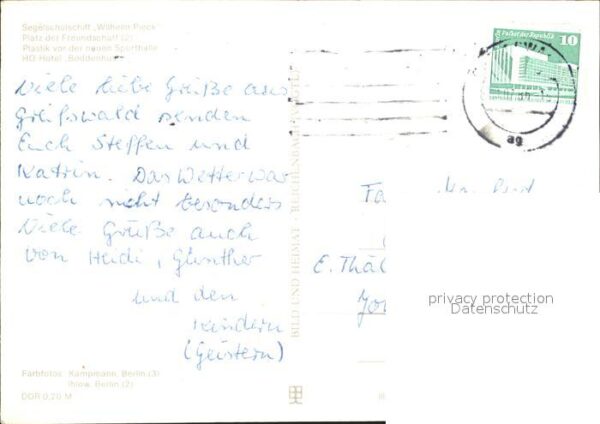 Segelschulschiff „Wilhelm Pieck“
Platz der Freundschaft (2)
Plastik vor der neuen Sporthalle
HO Hotel „Boddenhus“
Viele liebe Grüße aus
Greifswald senden
Euch Steffen und
Katrin. Das Wetter war
noch nicht besonders
Viele Grüße auch
von Heidi, Günther
und den
Kindern
(Geistern)
Farbfotos: Kampmann, Berlin (3)
Ihlow, Berlin (2)
DDR 0,20 M
BILD UND HEIMAT REICHENBACH
Palast der Republik
10
ag
Fa
E. Thäl
privacy protection
Datenschutz